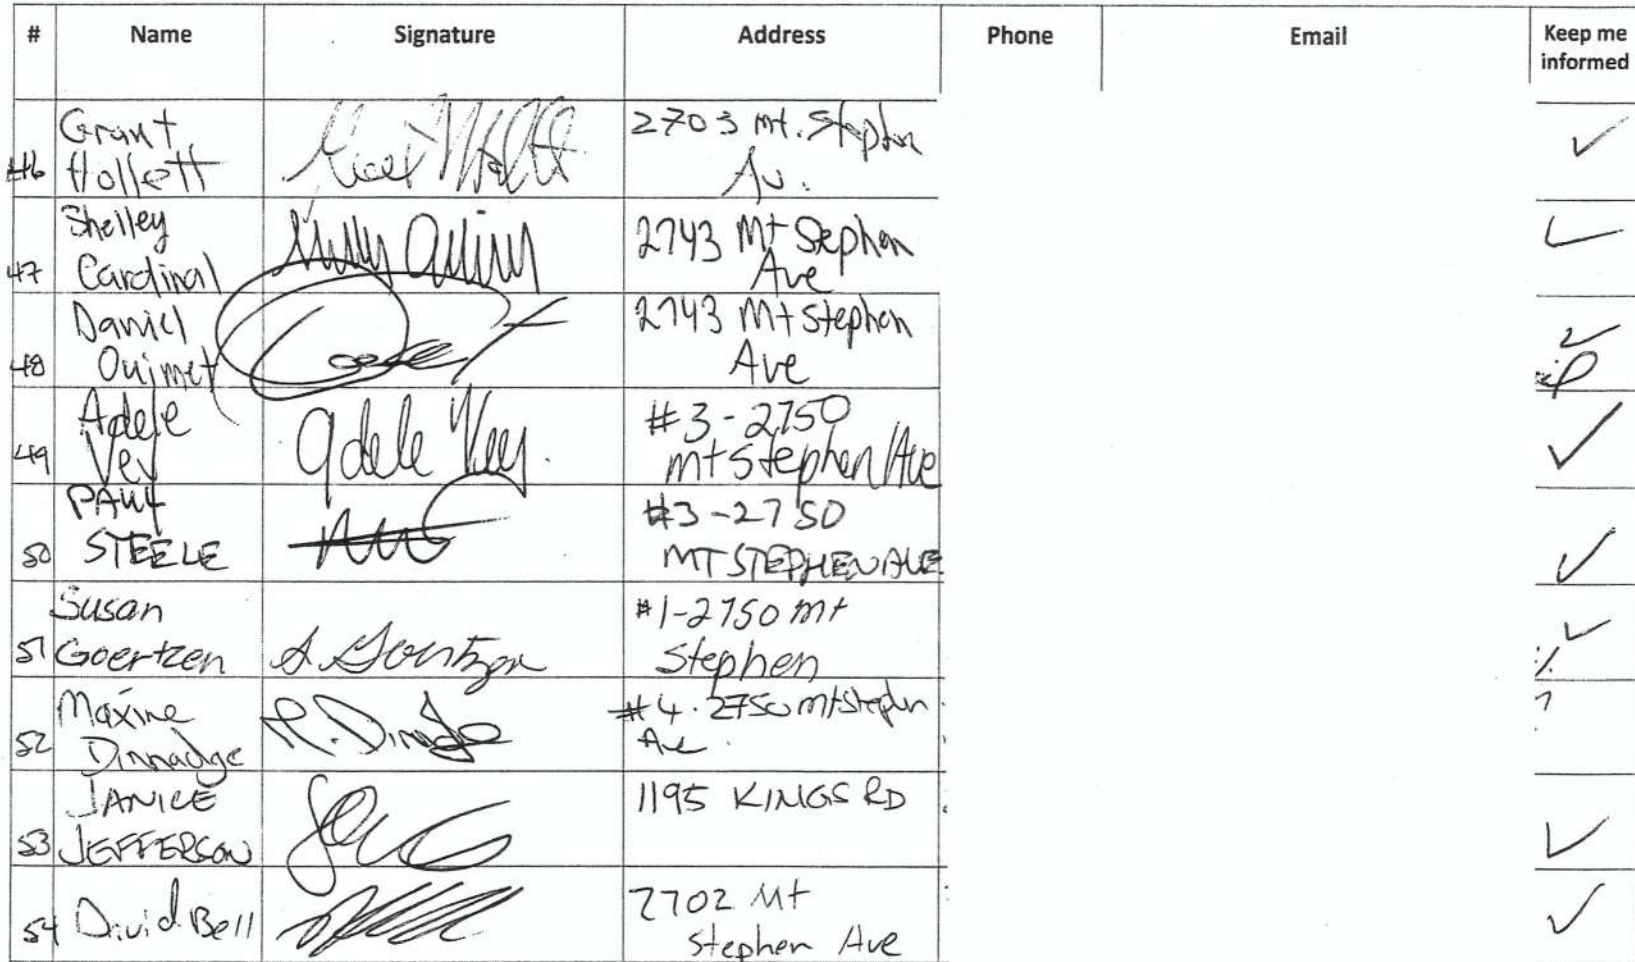 # Name Signature Address Phone Email Keep me informed
46 Grant Hollett 2703 Mt. Stephen Av.
47 Shelley Cardinal 2743 Mt Stephen Ave
48 Daniel Ouimet 2743 Mt Stephen Ave
49 Adele Vey Adele Vey. #3-2750 Mt Stephen Ave
50 PAUL STEELE #3-2750 MT STEPHEN AVE
51 Susan Goertzen S. Goertzen #1-2750 Mt Stephen
52 Maxine Dinnadge M. Dinnadge #4-2750 Mt Stephen Ave.
53 JANICE JEFFERSON 1195 KINGS RD
54 David Bell 2702 Mt Stephen Ave